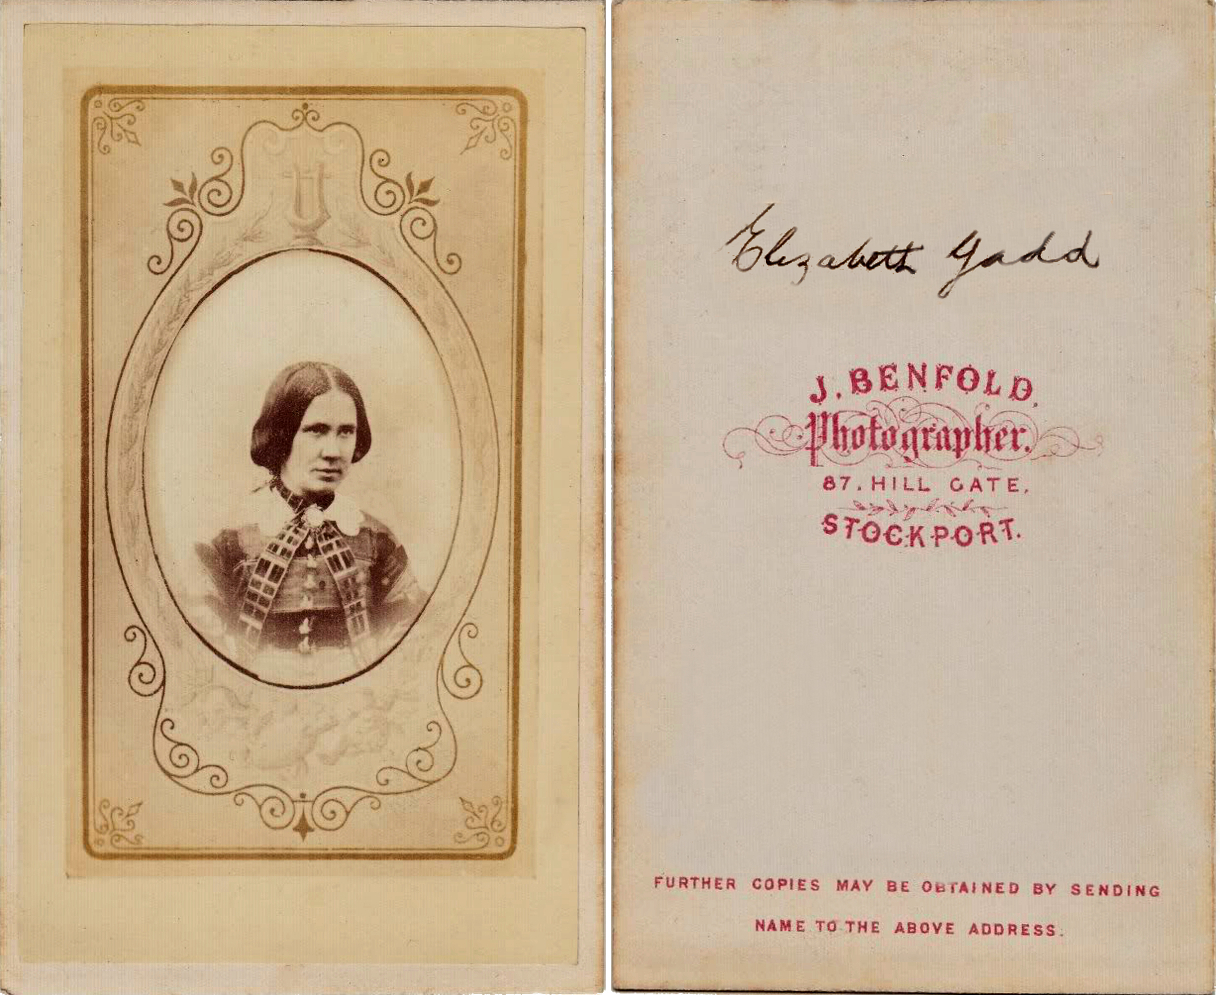 Elizabeth Gadd
J. BENFOLD,
Photographer.
87, HILL GATE,
STOCKPORT.
FURTHER COPIES MAY BE OBTAINED BY SENDING
NAME TO THE ABOVE ADDRESS.